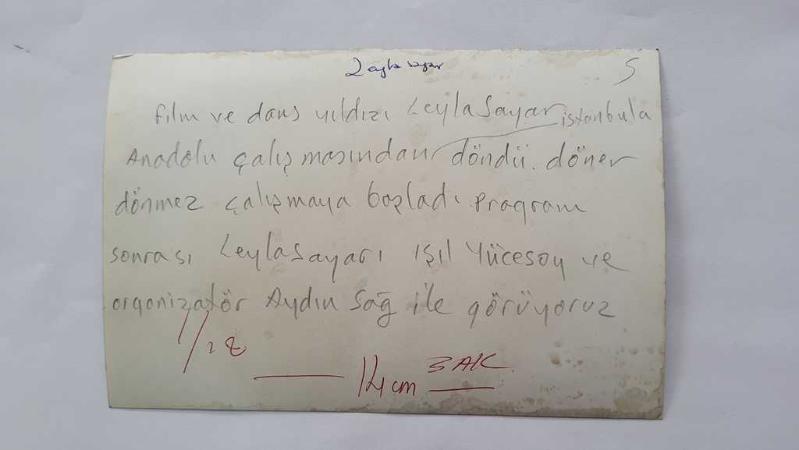 Leyla Sayar
5
film ve dans yıldızı Leyla Sayar istanbula
Anadolu çalışmasından döndü. döner
dönmez çalışmaya başladı. Program
sonrası Leyla Sayarı ışıl Yücesoy ve
organizatör Aydın Sağ ile görüyoruz
14 cm